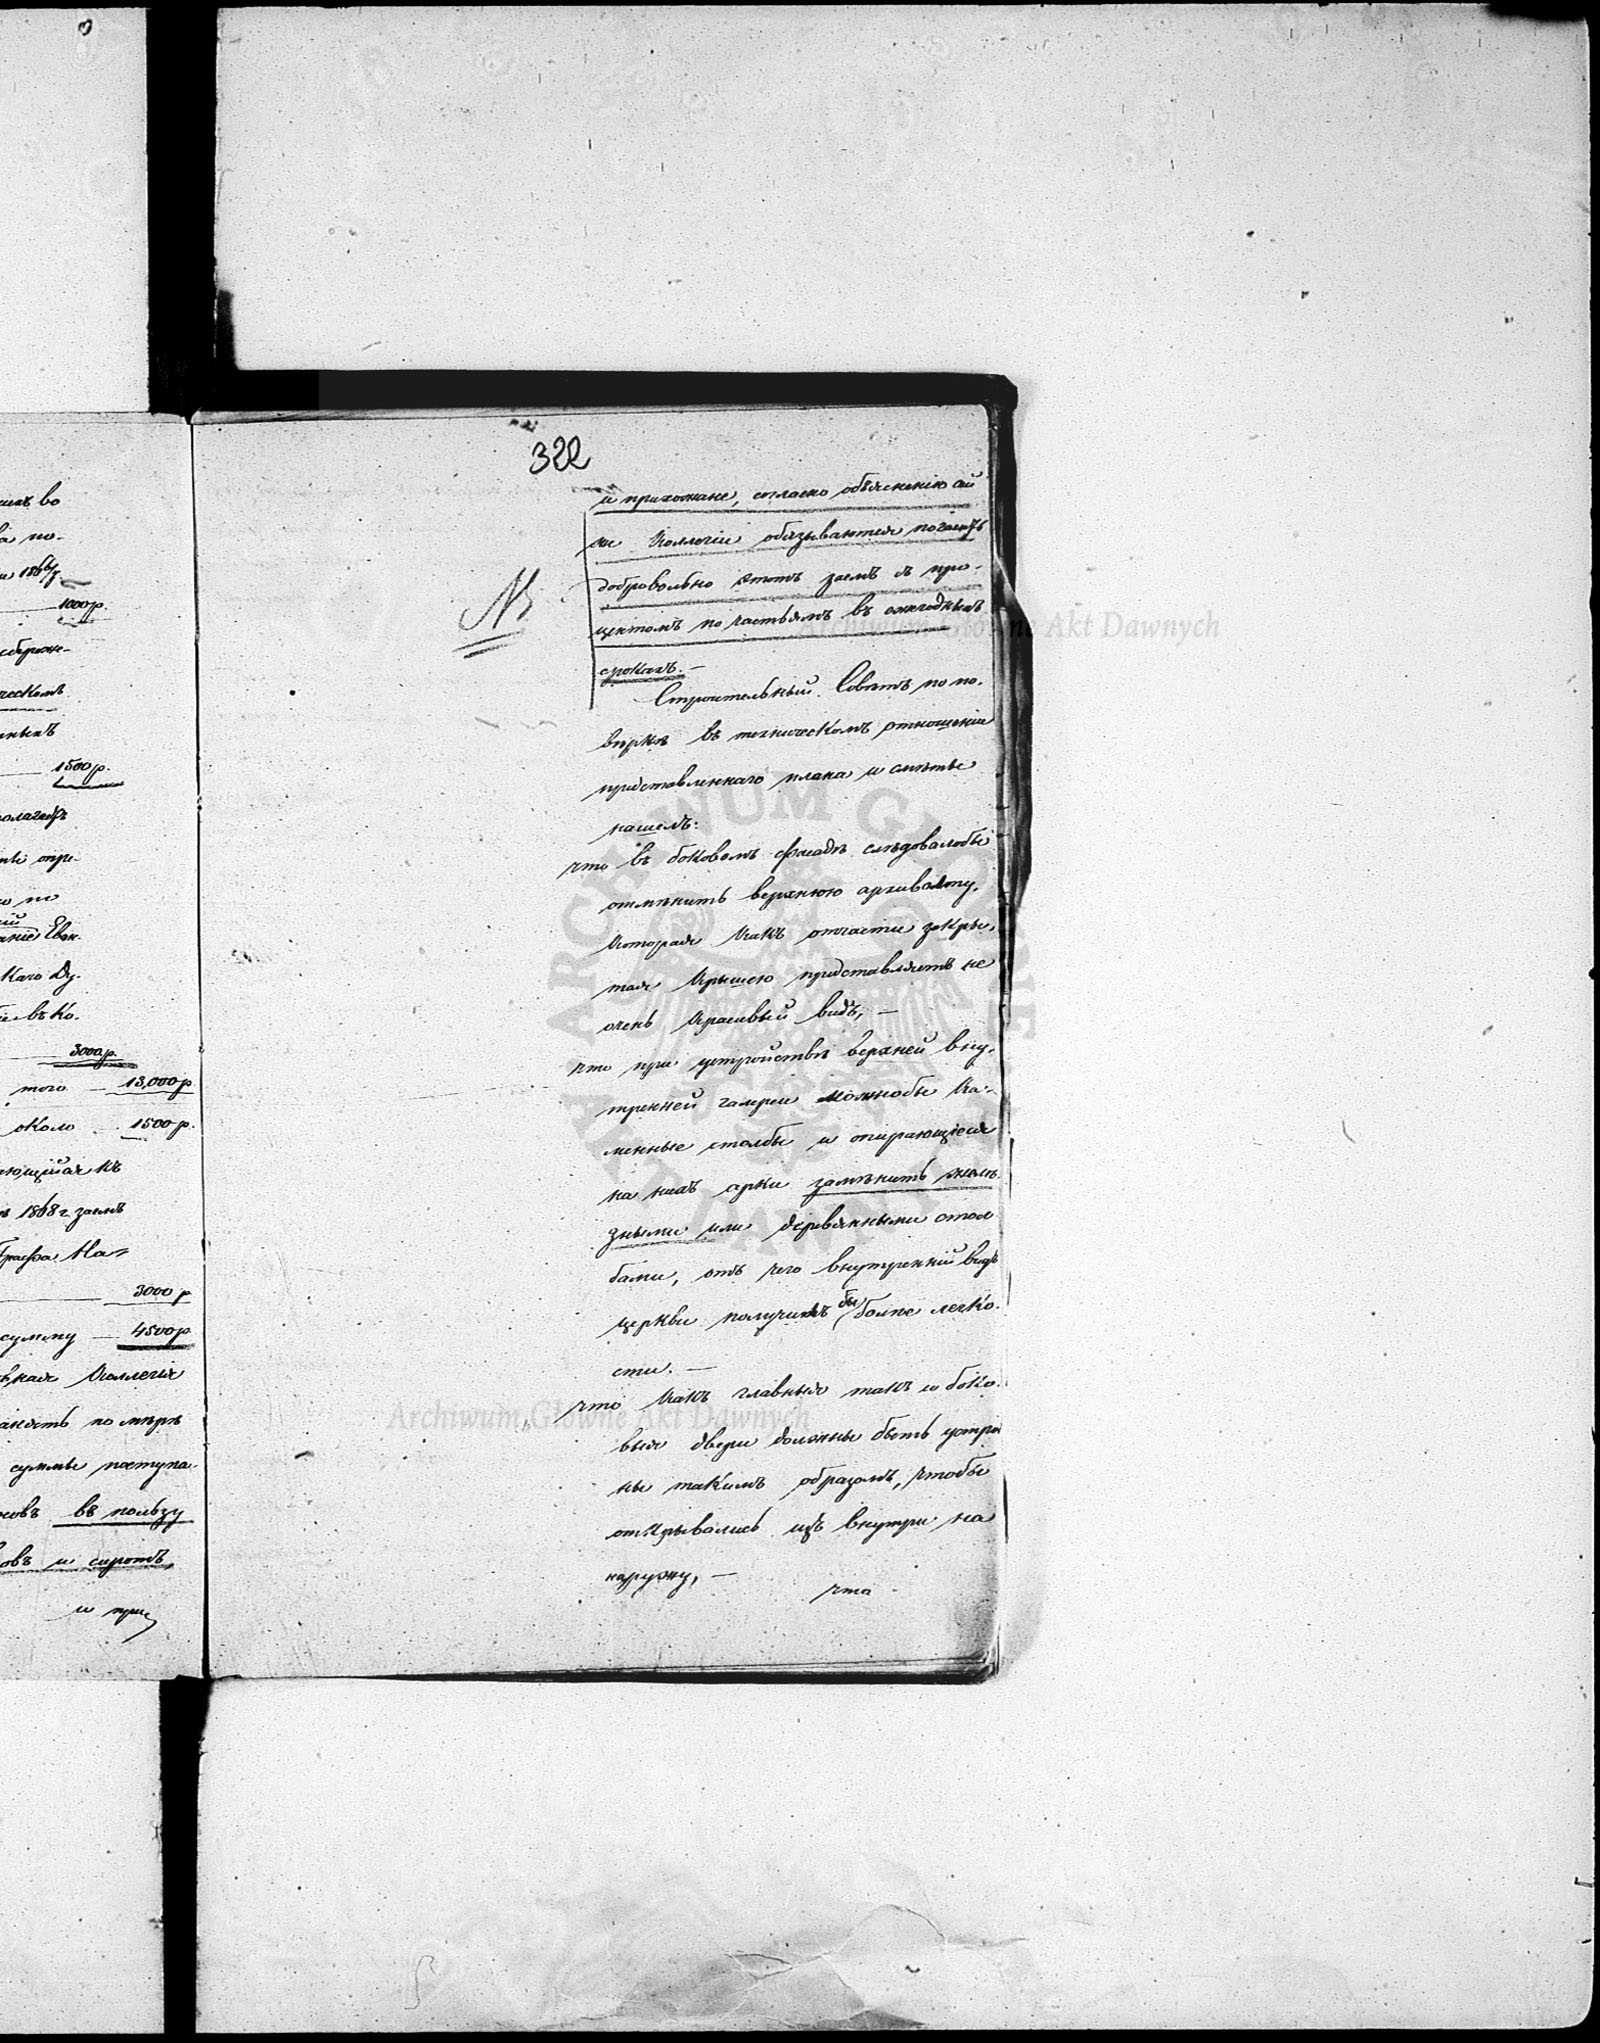 шихъ во
ва по-
и 1866/7
1000 р.
сбереже-
ческомъ
нныхъ
1500 р.
полагаетъ
опре-
по
аніе Еван.
каго Ду-
въ Ко.
3000 р.
того — 13,000 р.
около — 1500 р.
ющійся къ
1868 г. заемъ
Графа На=
3000 р
сумму — 4500 р
ная Коллегія
по мѣрѣ
суммы поступа-
въ пользу
овъ и сиротъ,
и при,
322
и прихожане, согласно объясненію ой
же Коллегіи обязываются погасить
добровольно этотъ заемъ съ про-
центомъ по частьямъ въ ежегодныхъ
срокахъ. —
№
Строительный Совѣтъ по по-
вѣркѣ въ техническомъ отношеніи
представленнаго плана и смѣты
нашелъ:
что въ боковомъ фасадѣ слѣдовалобы
отмѣнить верхнюю архивольту,
которая какъ отчасти закры-
тая крышею представляетъ не
очень красивый видъ, —
что при устройствѣ верхней вну-
тренней галереи можнобы ка-
менные столбы и опирающіеся
на нихъ арки замѣнить желѣ-
зными или деревянными стол
бами, отъ чего внутренній видъ
церкви получилъ бы болѣе легко-
сти. —
что какъ главныя такъ и боко-
выя двери должны быть устро
ны такимъ образомъ, чтобы
открывались изъ внутри на
наружу, —
что
Archiwum Główne Akt Dawnych
Archiwum Główne Akt Dawnych
ARCHIWUM GŁÓWNE AKT DAWNYCH